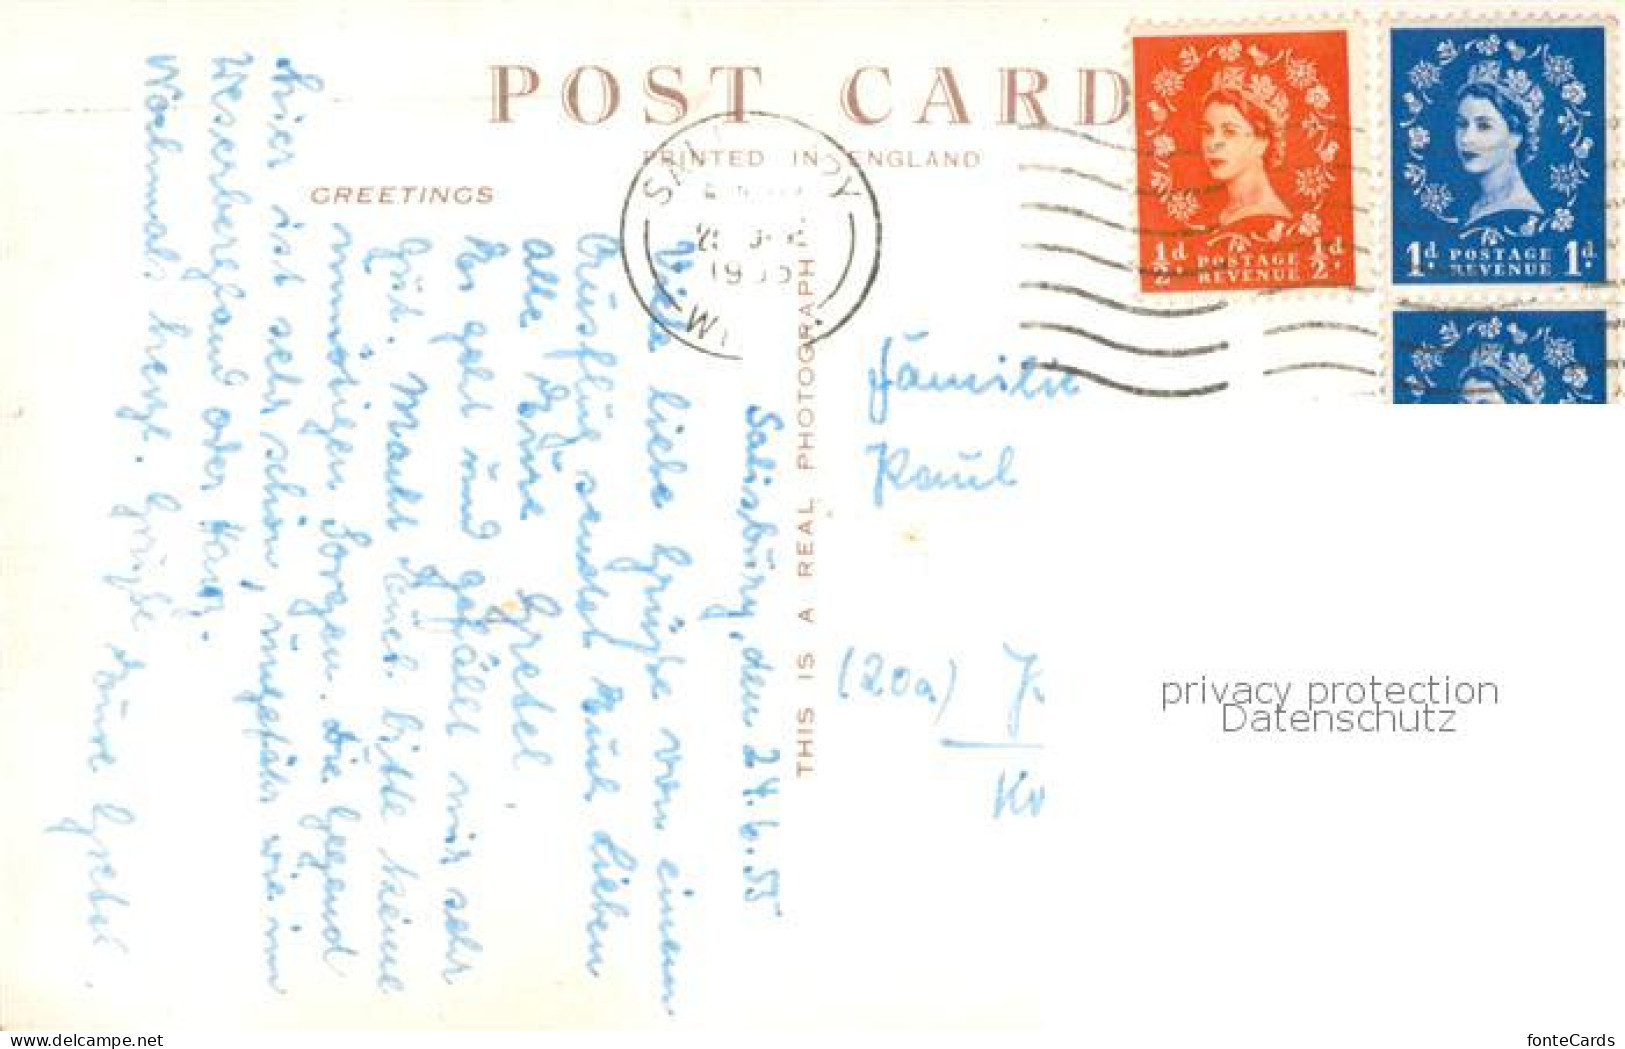 POST CARD
PRINTED IN ENGLAND
GREETINGS
THIS IS A REAL PHOTOGRAPH
Salisbury, den 24.6.55
Viele liebe Grüße von einem
Ausflug sendet Euch Lieben
alle Eure Gretel.
Es geht und gefällt mir sehr
gut. Macht Euch bitte keine
unnötigen Sorgen. Die Gegend
hier ist sehr schön, ungefähr wie im
Weserbergland oder Harz.
Nochmals herzl. Grüße Eure Gretel.
Familie
Paul
(20a)
1/2d POSTAGE REVENUE 1/2d
1d POSTAGE REVENUE 1d
1955
privacy protection
Datenschutz
www.delcampe.net
fonteCards